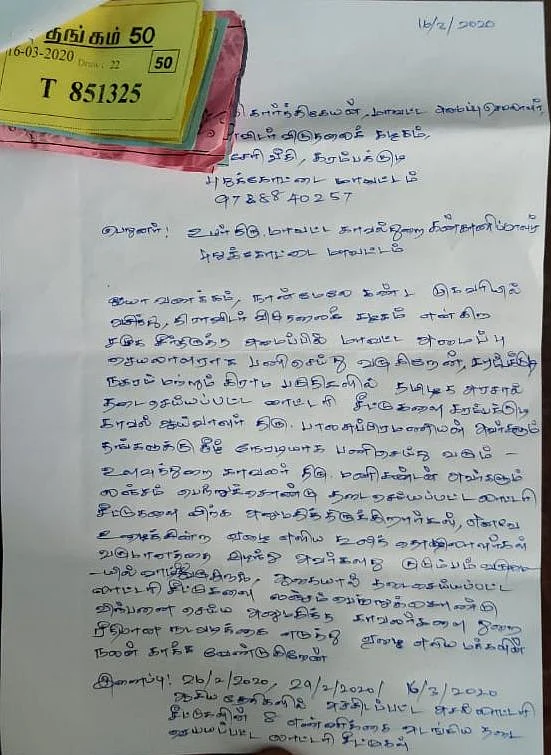 தங்கம் 50
16-03-2020 Draw: 22
50
T 851325
16/3/2020
கார்த்திகேயன், மாவட்ட அமைப்பு செயலாளர்,
திராவிடர் விடுதலைக் கழகம்,
வீதி, கறம்பக்குடி
புதுக்கோட்டை மாவட்டம்
9788840257
பெறுனர்: உயர்திரு. மாவட்ட காவல்துறை கண்காணிப்பாளர்
புதுக்கோட்டை மாவட்டம்
ஐயா வணக்கம், நான் மேலே கண்ட முகவரியில்
வசித்து, திராவிடர் விடுதலைக் கழகம் என்கிற
சமூக சீர்திருத்த அமைப்பில் மாவட்ட அமைப்பு
செயலாளராக பணிசெய்து வருகிறேன், கறம்பக்குடி
நகரம் மற்றும் கிராம பகுதிகளில் தமிழக அரசால்
தடைசெய்யப்பட்ட லாட்டரி சீட்டுகளை கறம்பக்குடி
காவல் ஆய்வாளர் திரு. பாலசுப்பிரமணியன் அவர்களும்
தங்களுக்கு கீழ் நேரடியாக பணிசெய்து வரும் -
உளவுத்துறை காவலர் திரு. மணிகண்டன் அவர்களும்
லஞ்சம் பெற்றுக்கொண்டு தடைசெய்யப்பட்ட லாட்டரி
சீட்டுகளை விற்க அனுமதித்திருக்கிறார்கள், எனவே
உழைக்கின்ற ஏழை எளிய கூலித் தொழிலாளர்கள்
வருமானத்தை இழந்து அவர்களது குடும்பம் வறுமை
-யில் வாடுகிறது, ஆகையால் தடைசெய்யப்பட்ட
லாட்டரி சீட்டுகளை லஞ்சம் பெற்றுக்கொண்டு
விற்பனை செய்ய அனுமதித்த காவலர்களை துறை
ரீதியான நடவடிக்கை எடுத்து ஏழை எளிய மக்களின்
நலன் காக்க வேண்டுகிறேன்
இணைப்பு: 26/2/2020, 29/2/2020/ 16/3/2020
ஆகிய தேதிகளில் அச்சிடப்பட்ட அசல் லாட்டரி
சீட்டுகளின் 8 எண்ணிக்கை அடங்கிய தடை
செய்யப்பட்ட லாட்டரி சீட்டுகள்